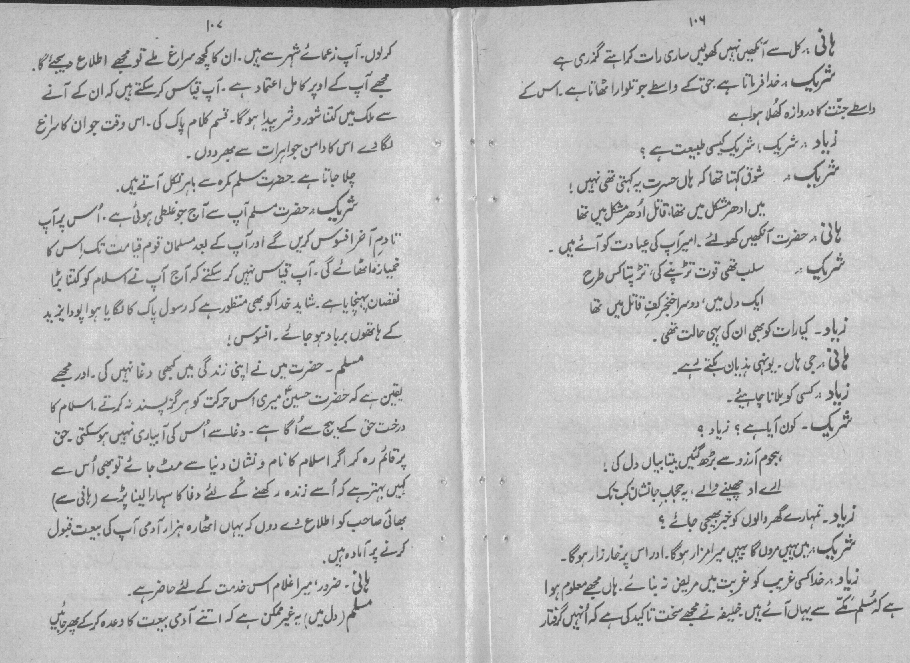 ۱۰۶
ہانی :۔ کل سے آنکھیں نہیں کھولیں ساری رات کراہتے گزری ہے
شریک :۔ خدا فرماتا ہے۔ حق کے واسطے جو تلوار اٹھاتا ہے۔ اس کے
واسطے جنّت کا دروازہ کھلا ہوا ہے
زیاد :۔ شریک، شریک کیسی طبیعت ہے؟
شریک :۔ شوق کہتا تھا کہ ہاں حسرت یہ کہتی تھی نہیں!
میں ادھر مشکل میں تھا، قاتل اُدھر مشکل میں تھا
ہانی :۔ حضرت آنکھیں کھولئے۔ امیر آپ کی عیادت کو آئے ہیں۔
شریک :۔ سلب تھی قوت تڑپنے کی، تڑپتا کس طرح
ایک دل میں، دوسرا خنجر کف قاتل میں تھا
زیاد۔ کیا رات کو بھی ان کی یہی حالت تھی۔
ہانی :۔ جی ہاں۔ یونہی ہذیان بکتے رہے۔
زیاد :۔ کسی کو بلانا چاہیئے۔
شریک۔ کون آیا ہے؟ زیاد؟
ہجوم آرزو سے بڑھ گئیں بیتابیاں دل کی!
ارے او چھپنے والے، یہ حجاب جانستاں کب تک
زیاد۔ تمہارے گھر والوں کو خبر بھیجی جائے؟
شریک :۔ میں یہیں مروں گا یہیں میرا مزار ہوگا۔ اور اس پر خار زار ہوگا۔
زیاد :۔ خدا کسی غریب کو غربت میں مریض نہ بنائے۔ ہاں مجھے معلوم ہوا
ہے کہ مُسلم مکّے سے یہاں آئے ہیں خلیفہ نے مجھے سخت تاکید کی ہے کہ اُنہیں گرفتار
۱۰۷
کر لوں۔ آپ زعمائے شہر سے ہیں۔ ان کا کچھ سراغ ملے تو مجھے اطلاع دیجئے گا۔
مجھے آپ کے اوپر کامل اعتماد ہے۔ آپ قیاس کر سکتے ہیں کہ ان کے آنے
سے ملک میں کتنا شور و شر پیدا ہوگا۔ قسم کلام پاک کی۔ اس وقت جو ان کا سراغ
لگا دے اس کا دامن جواہرات سے بھر دوں۔
چلا جاتا ہے حضرت مسلم کمرہ سے باہر نکل آتے ہیں۔
شریک :۔ حضرت مسلم آپ سے آج جو غلطی ہوئی ہے۔ اُس پر آپ
تا دمِ آخر افسوس کریں گے اور آپ کے بعد مسلمان قوم قیامت تک اس کا
خمیازہ اٹھائے گی۔ آپ قیاس نہیں کر سکتے کہ آج آپ نے اسلام کو کتنا بڑا
نقصان پہنچایا ہے۔ شاید خدا کو بھی منظور ہے کہ رسول پاک کا لگایا ہوا پودا یزید
کے ہاتھوں برباد ہو جائے۔ افسوس!
مسلم۔ حضرت میں نے اپنی زندگی میں کبھی دغا نہیں کی۔ اور مجھے
یقین ہے کہ حضرت حسینؑ میری اس حرکت کو ہرگز پسند نہ کرتے۔ اسلام کا
درخت حق کے بیج سے اُگا ہے۔ دغا سے اُس کی آبیاری نہیں ہو سکتی۔ حق
پر قائم رہ کر اگر اسلام کا نام و نشان دنیا سے مٹ جائے تو بھی اُس سے
کہیں بہتر ہے کہ اُسے زندہ رکھنے کے لئے دغا کا سہارا لینا پڑے (ہانی سے)
بھائی صاحب کو اطلاع دے دوں کہ یہاں اٹھارہ ہزار آدمی آپ کی بیعت قبول
کرنے پر آمادہ ہیں۔
ہانی۔ ضرور، میرا غلام اس خدمت کے لئے حاضر ہے۔
مسلم (دل میں) یہ غیر ممکن ہے کہ اتنے آدمی بیعت کا وعدہ کر کے پھر جائیں